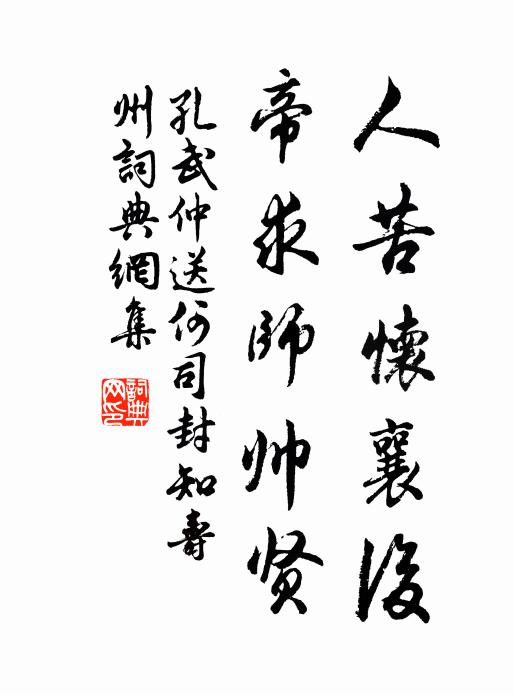 人苦懷襄後
帝求師帅贤
孔武仲送何司封知壽
州詞典網集
詞典网印